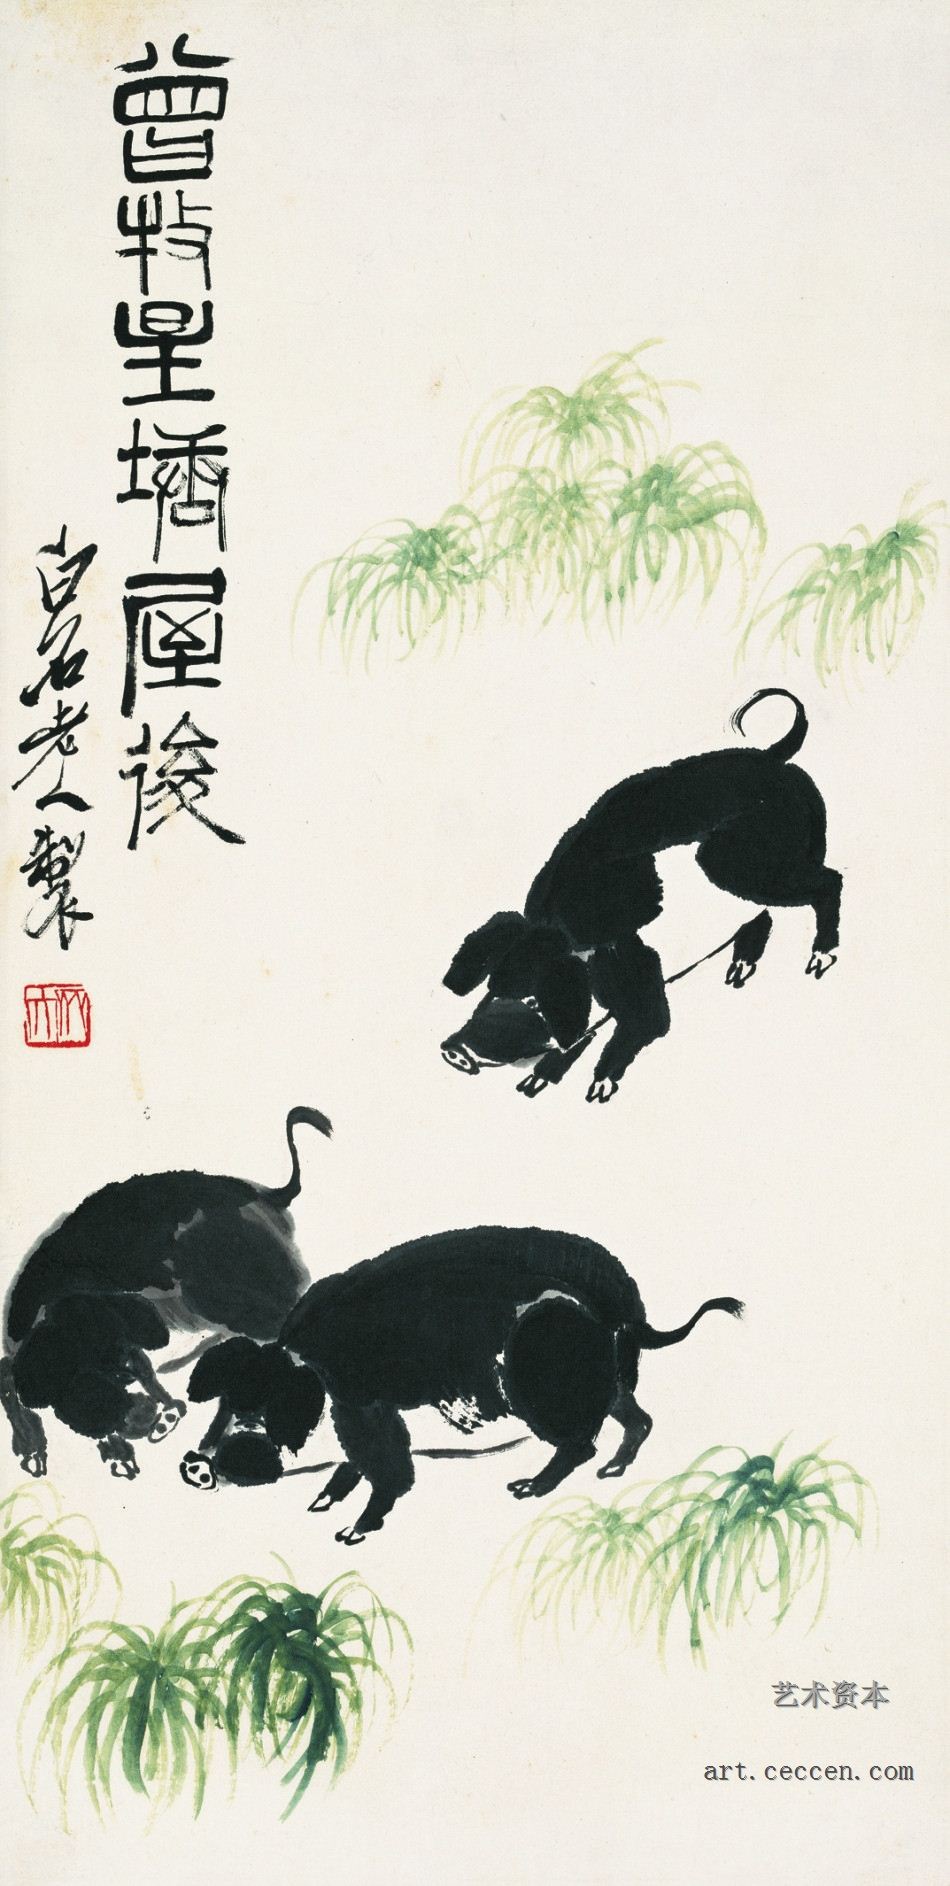 曾牧星塘屋後
白石老人製
艺术资本
art.ceccen.com